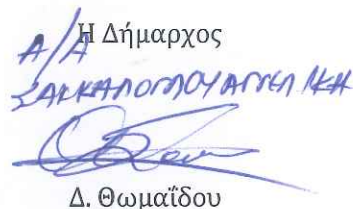 Η Δήμαρχος
Α/Α
ΣΑΚΚΑΛΟΠΟΥΛΟΥ ΑΓΓΕΛΙΚΗ
Δ. Θωμαΐδου